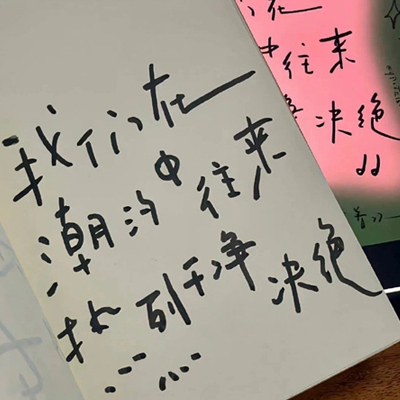 我们在
潮汐中往来
热烈干净决绝
在
中往来
决绝